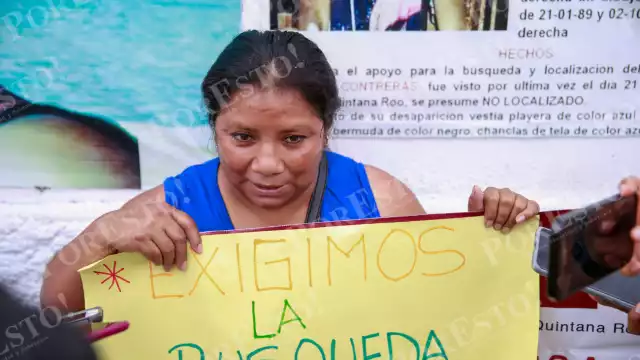 de 21-01-89 y 02-10
derecha
HECHOS
el apoyo para la búsqueda y localización del
CONTRERAS fue visto por ultima vez el dia 21
Quintana Roo, se presume NO LOCALIZADO.
de su desaparición vestía playera de color azul
bermuda de color negro, chanclas de tela de color azul
* EXIGIMOS
LA
BUSQUEDA
Quintana Roo
POR ESTO!